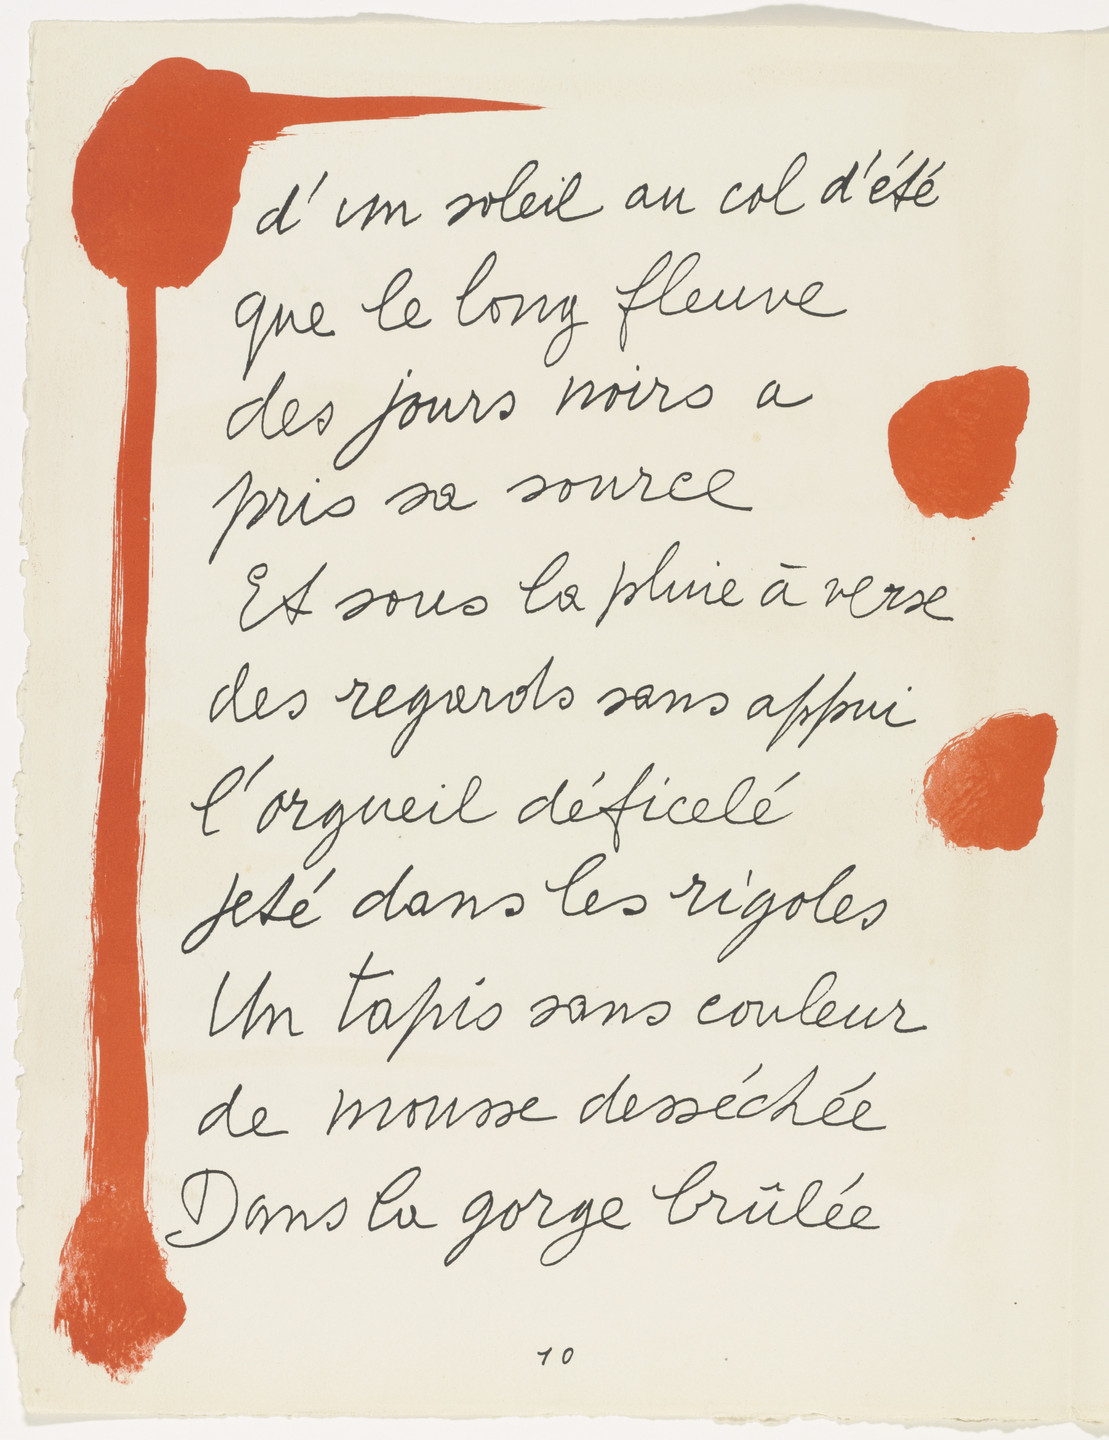 d'un soleil au col d'été
que le long fleuve
des jours noirs a
pris sa source
Et sous la pluie à verse
des regards sans appui
l'orgueil déficelé
jeté dans les rigoles
Un tapis sans couleur
de mousse desséchée
Dans la gorge brûlée
10